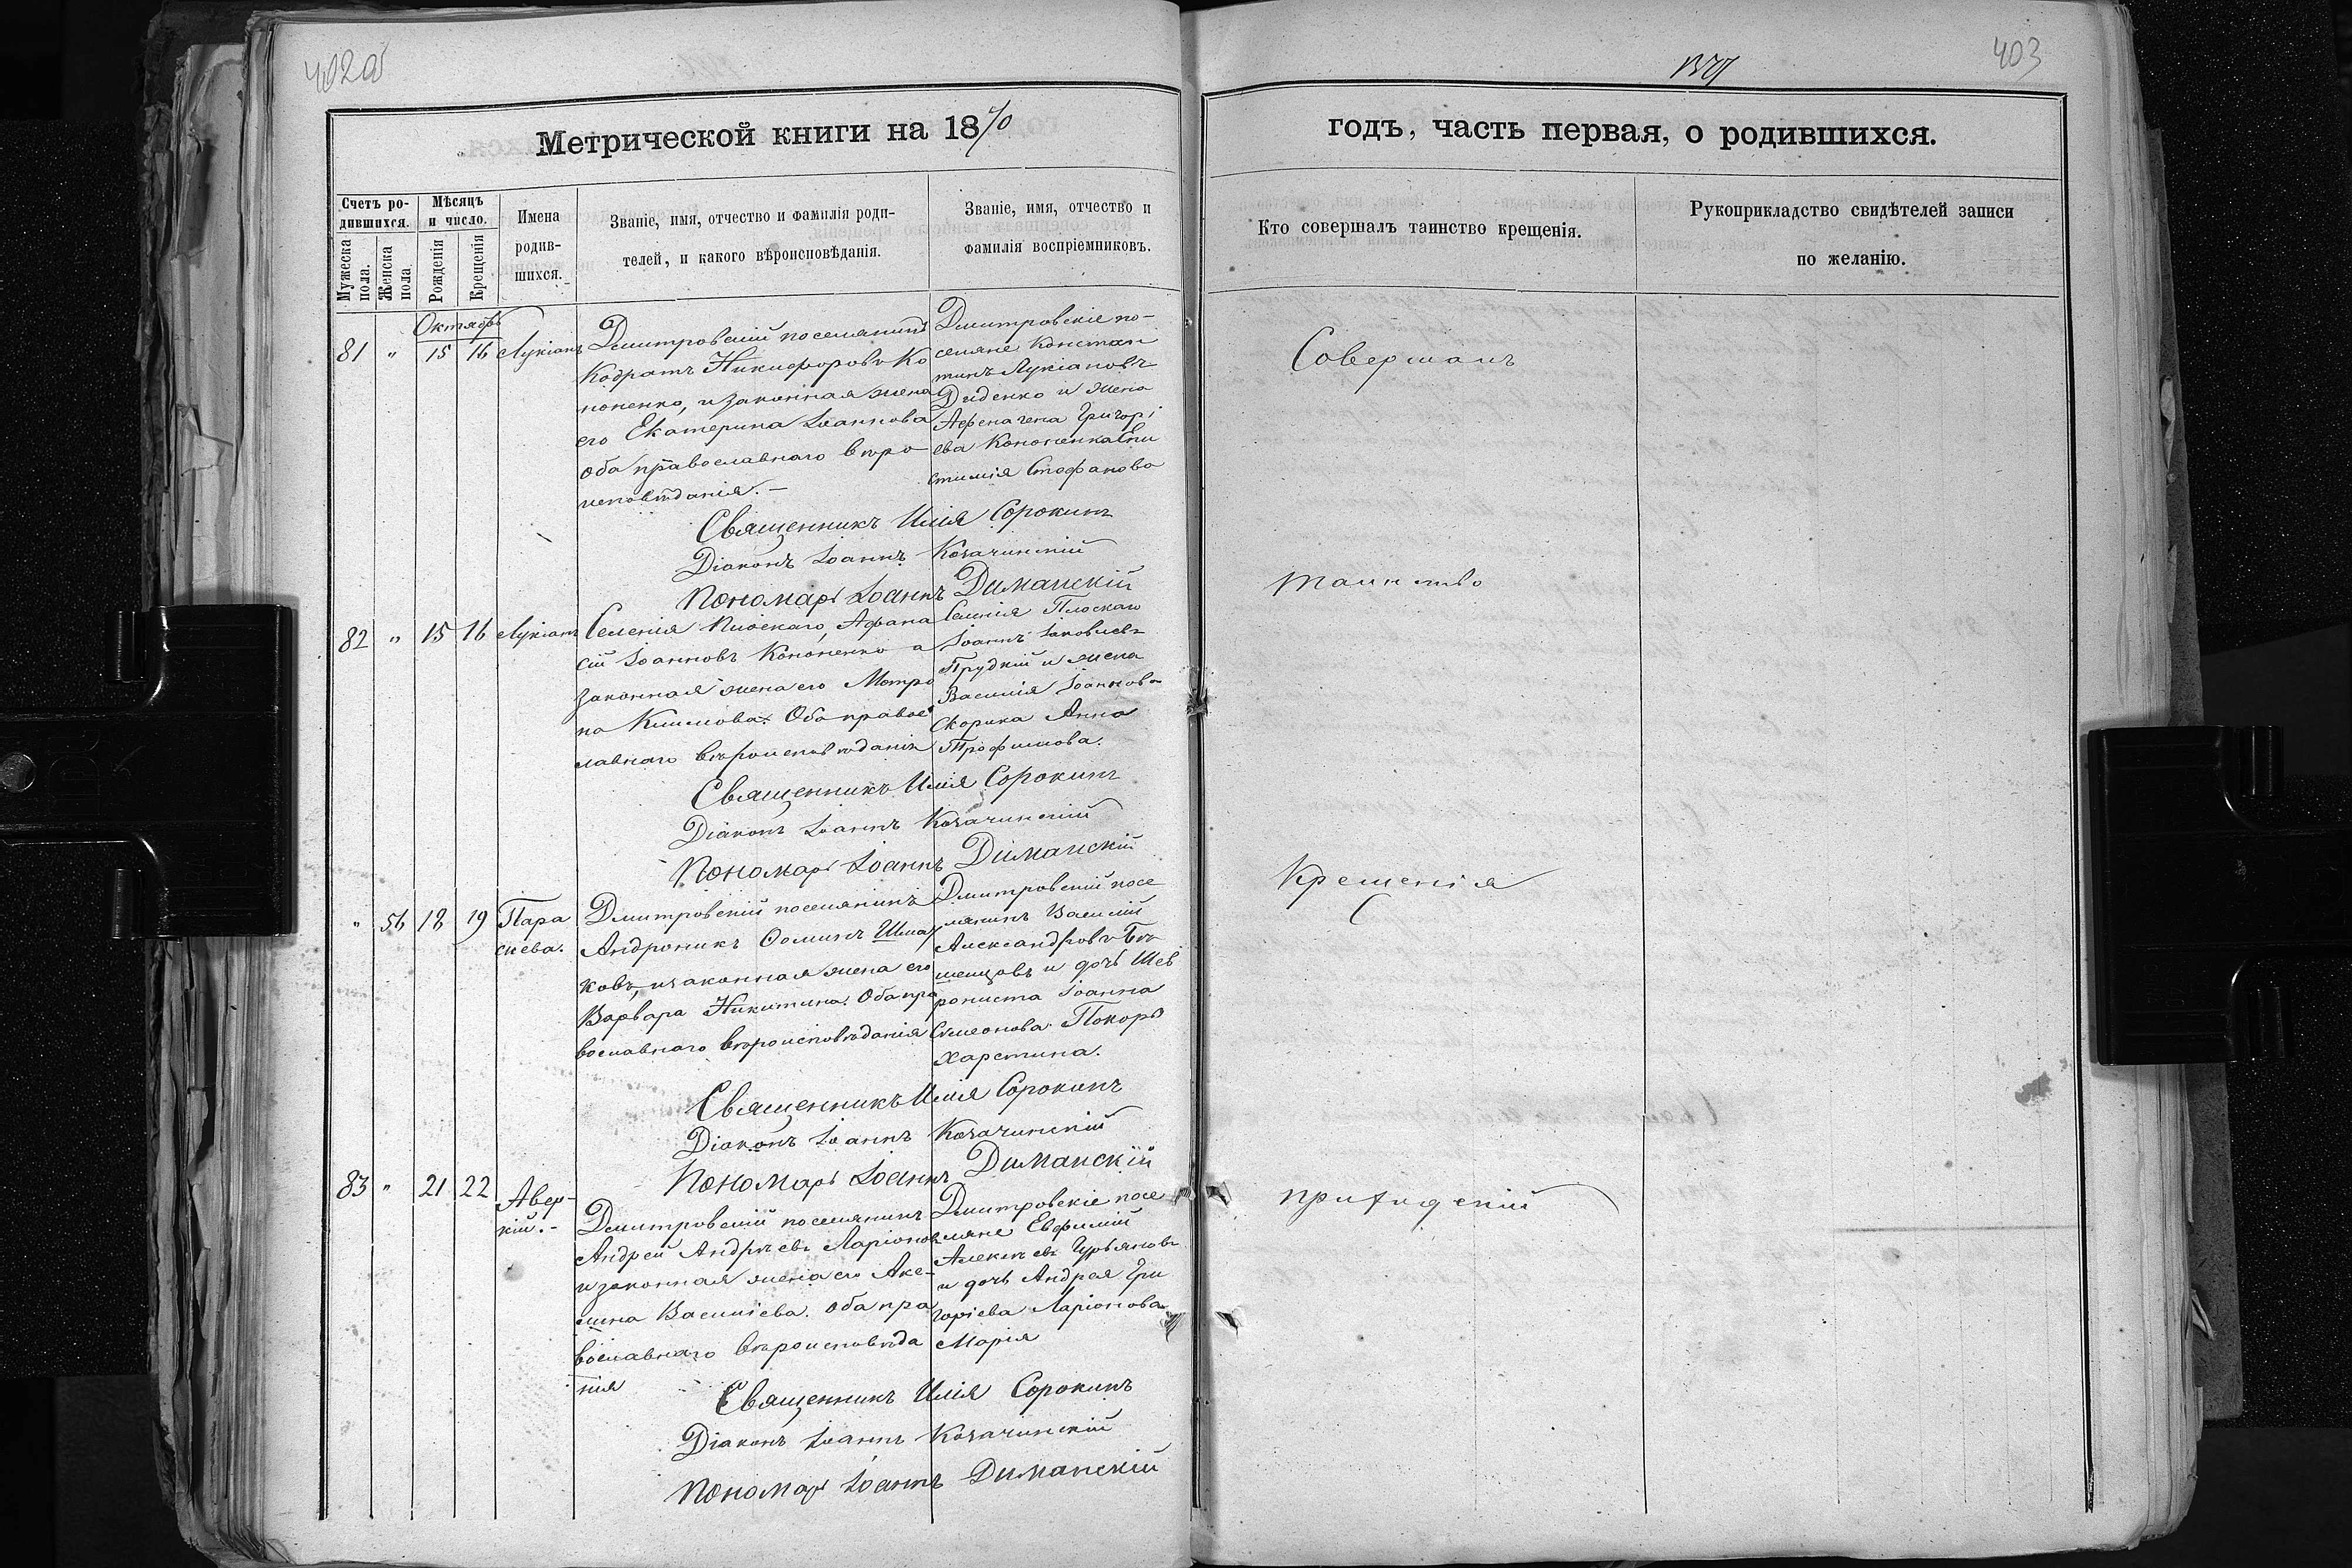 402об
403
Метрической книги на 1870
годъ, часть первая, о родившихся.
Счетъ ро-
дившихся.
Мѣсяцъ
и число.
Мужеска
пола.
Женска
пола.
Рожденія
Крещенія
Имена
родив-
шихся.
Званіе, имя, отчество и фамилія роди-
телей, и какого вѣроисповѣданія.
Званіе, имя, отчество и
фамилія воспріемниковъ.
Кто совершалъ таинство крещенія.
Рукоприкладство свидѣтелей записи
по желанію.
Октябрь
81 " 15 16 Лукіанъ
Дмитровскій поселянинъ
Кодратъ Никифоровъ Ко
ноненко, и законная жена
его Екатерина Іоаннова
оба православнаго вѣро
исповѣданія.-
Дмитровскіе по-
селяне Констан
тинъ Лукіановъ
Диденко и жена
Григорі
ева Кононенка Епи
стимія Стефанова
Священникъ Илія Сорокинъ
Діаконъ Іоаннъ Козачинскій
Пономарь Іоаннъ Диманскій
82 " 15 16 Лукіанъ
Селенія Плоскаго, Афана
сій Іоанновъ Кононенко а
законная жена его Матро
на Климова. Оба правос
лавнаго вѣроисповѣданія
Селенія Плоскаго
Іоаннъ Іаковлевъ
Прудкій и жена
Василія Іоаннова
Скорика Анна
Трофимова.
Священникъ Илія Сорокинъ
Діаконъ Іоаннъ Козачинскій
Пономарь Іоаннъ Диманскій
" 56 18 19 Пара
скева.
Дмитровскій поселянинъ
Андроникъ Ѳоминъ Шма
ковъ, и законная жена его
Варвара Никитина. Оба пра
вославнаго вѣроисповѣданія
Дмитровскій посе
лянинъ Василій
Александровъ
и дочь
Іоанна
Симеонова
Харетина.
Священникъ Илія Сорокинъ
Діаконъ Іоаннъ Козачинскій
Пономарь Іоаннъ Диманскій
83 " 21 22 Авер-
кій.-
Дмитровскій поселянинъ
Андрей Андрѣевъ Ларіонов
и законная жена его Аке-
лина Василіева. Оба пра
вославнаго вѣроисповѣда
нія
Дмитровскіе посе
ляне Евфимій
Алексѣевъ Гурьяновъ
и дочь Андрея Гри
горіева Ларіонова
Марія
Священникъ Илія Сорокинъ
Діаконъ Іоаннъ Козачинскій
Пономарь Іоаннъ Диманскій
Совершалъ
таинство
Крещенія
приходскій